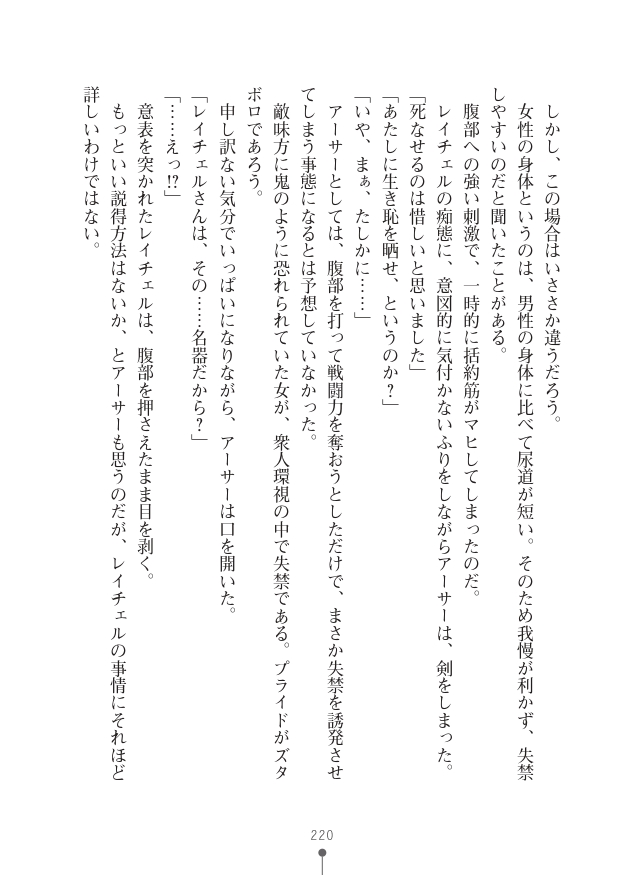 しかし、この場合はいささか違うだろう。
女性の身体というのは、男性の身体に比べて尿道が短い。そのため我慢が利かず、失禁
しやすいのだと聞いたことがある。
腹部への強い刺激で、一時的に括約筋がマヒしてしまったのだ。
レイチェルの痴態に、意図的に気付かないふりをしながらアーサーは、剣をしまった。
「死なせるのは惜しいと思いました」
「あたしに生き恥を晒せ、というのか？」
「いや、まぁ、たしかに……」
アーサーとしては、腹部を打って戦闘力を奪おうとしただけで、まさか失禁を誘発させ
てしまう事態になるとは予想していなかった。
敵味方に鬼のように恐れられていた女が、衆人環視の中で失禁である。プライドがズタ
ボロであろう。
申し訳ない気分でいっぱいになりながら、アーサーは口を開いた。
「レイチェルさんは、その……名器だから？」
「……えっ!?」
意表を突かれたレイチェルは、腹部を押さえたまま目を剥く。
もっといい説得方法はないか、とアーサーも思うのだが、レイチェルの事情にそれほど
詳しいわけではない。
220